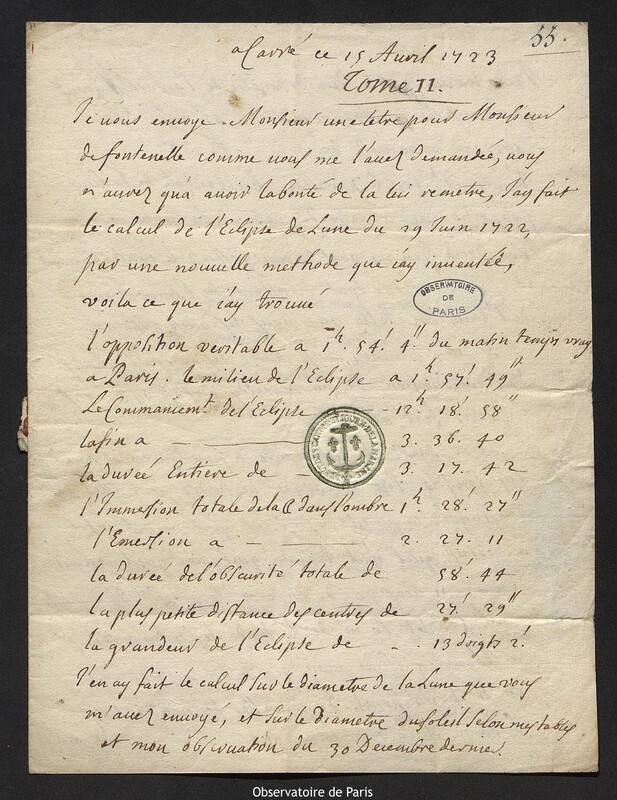 55.
a Carré ce 15 Avril 1723
Tome II.
Je vous envoye Monsieur une letre pour Monsieur
de fontenelle comme vous me l'avez demandée, vous
n'aurez qu'a avoir la bonté de la lui remetre, J'ay fait
le calcul de l'Eclipse de Lune du 29 Juin 1722,
par une nouvelle methode que j'ay inventée,
voila ce que j'ay trouvé
OBSERVATOIRE
DE
PARIS
l'opposition veritable a 1h. 54' 4" du matin temps vray
a Paris. le milieu de l'Eclipse a 1h. 57' 49"
Le Commancemt. de l'Eclipse - 12h 18' 58"
la fin a — 3. 36. 40
la durée Entiere de — 3. 17. 42
l'Immersion totale de la ☾ dans l'ombre 1h. 28' 27"
l'Emersion a — 2. 27. 11
la durée de l'obscurité totale de 58' 44
la plus petite distance des centres de 27' 29"
la grandeur de l'Eclipse de - . 13 doigts 2'
J'en ay fait le calcul sur le diametre de la Lune que vous
m'avez envoyé, et sur le Diametre du soleil selon mes tables
et mon observation du 30 Decembre dernier.
Observatoire de Paris